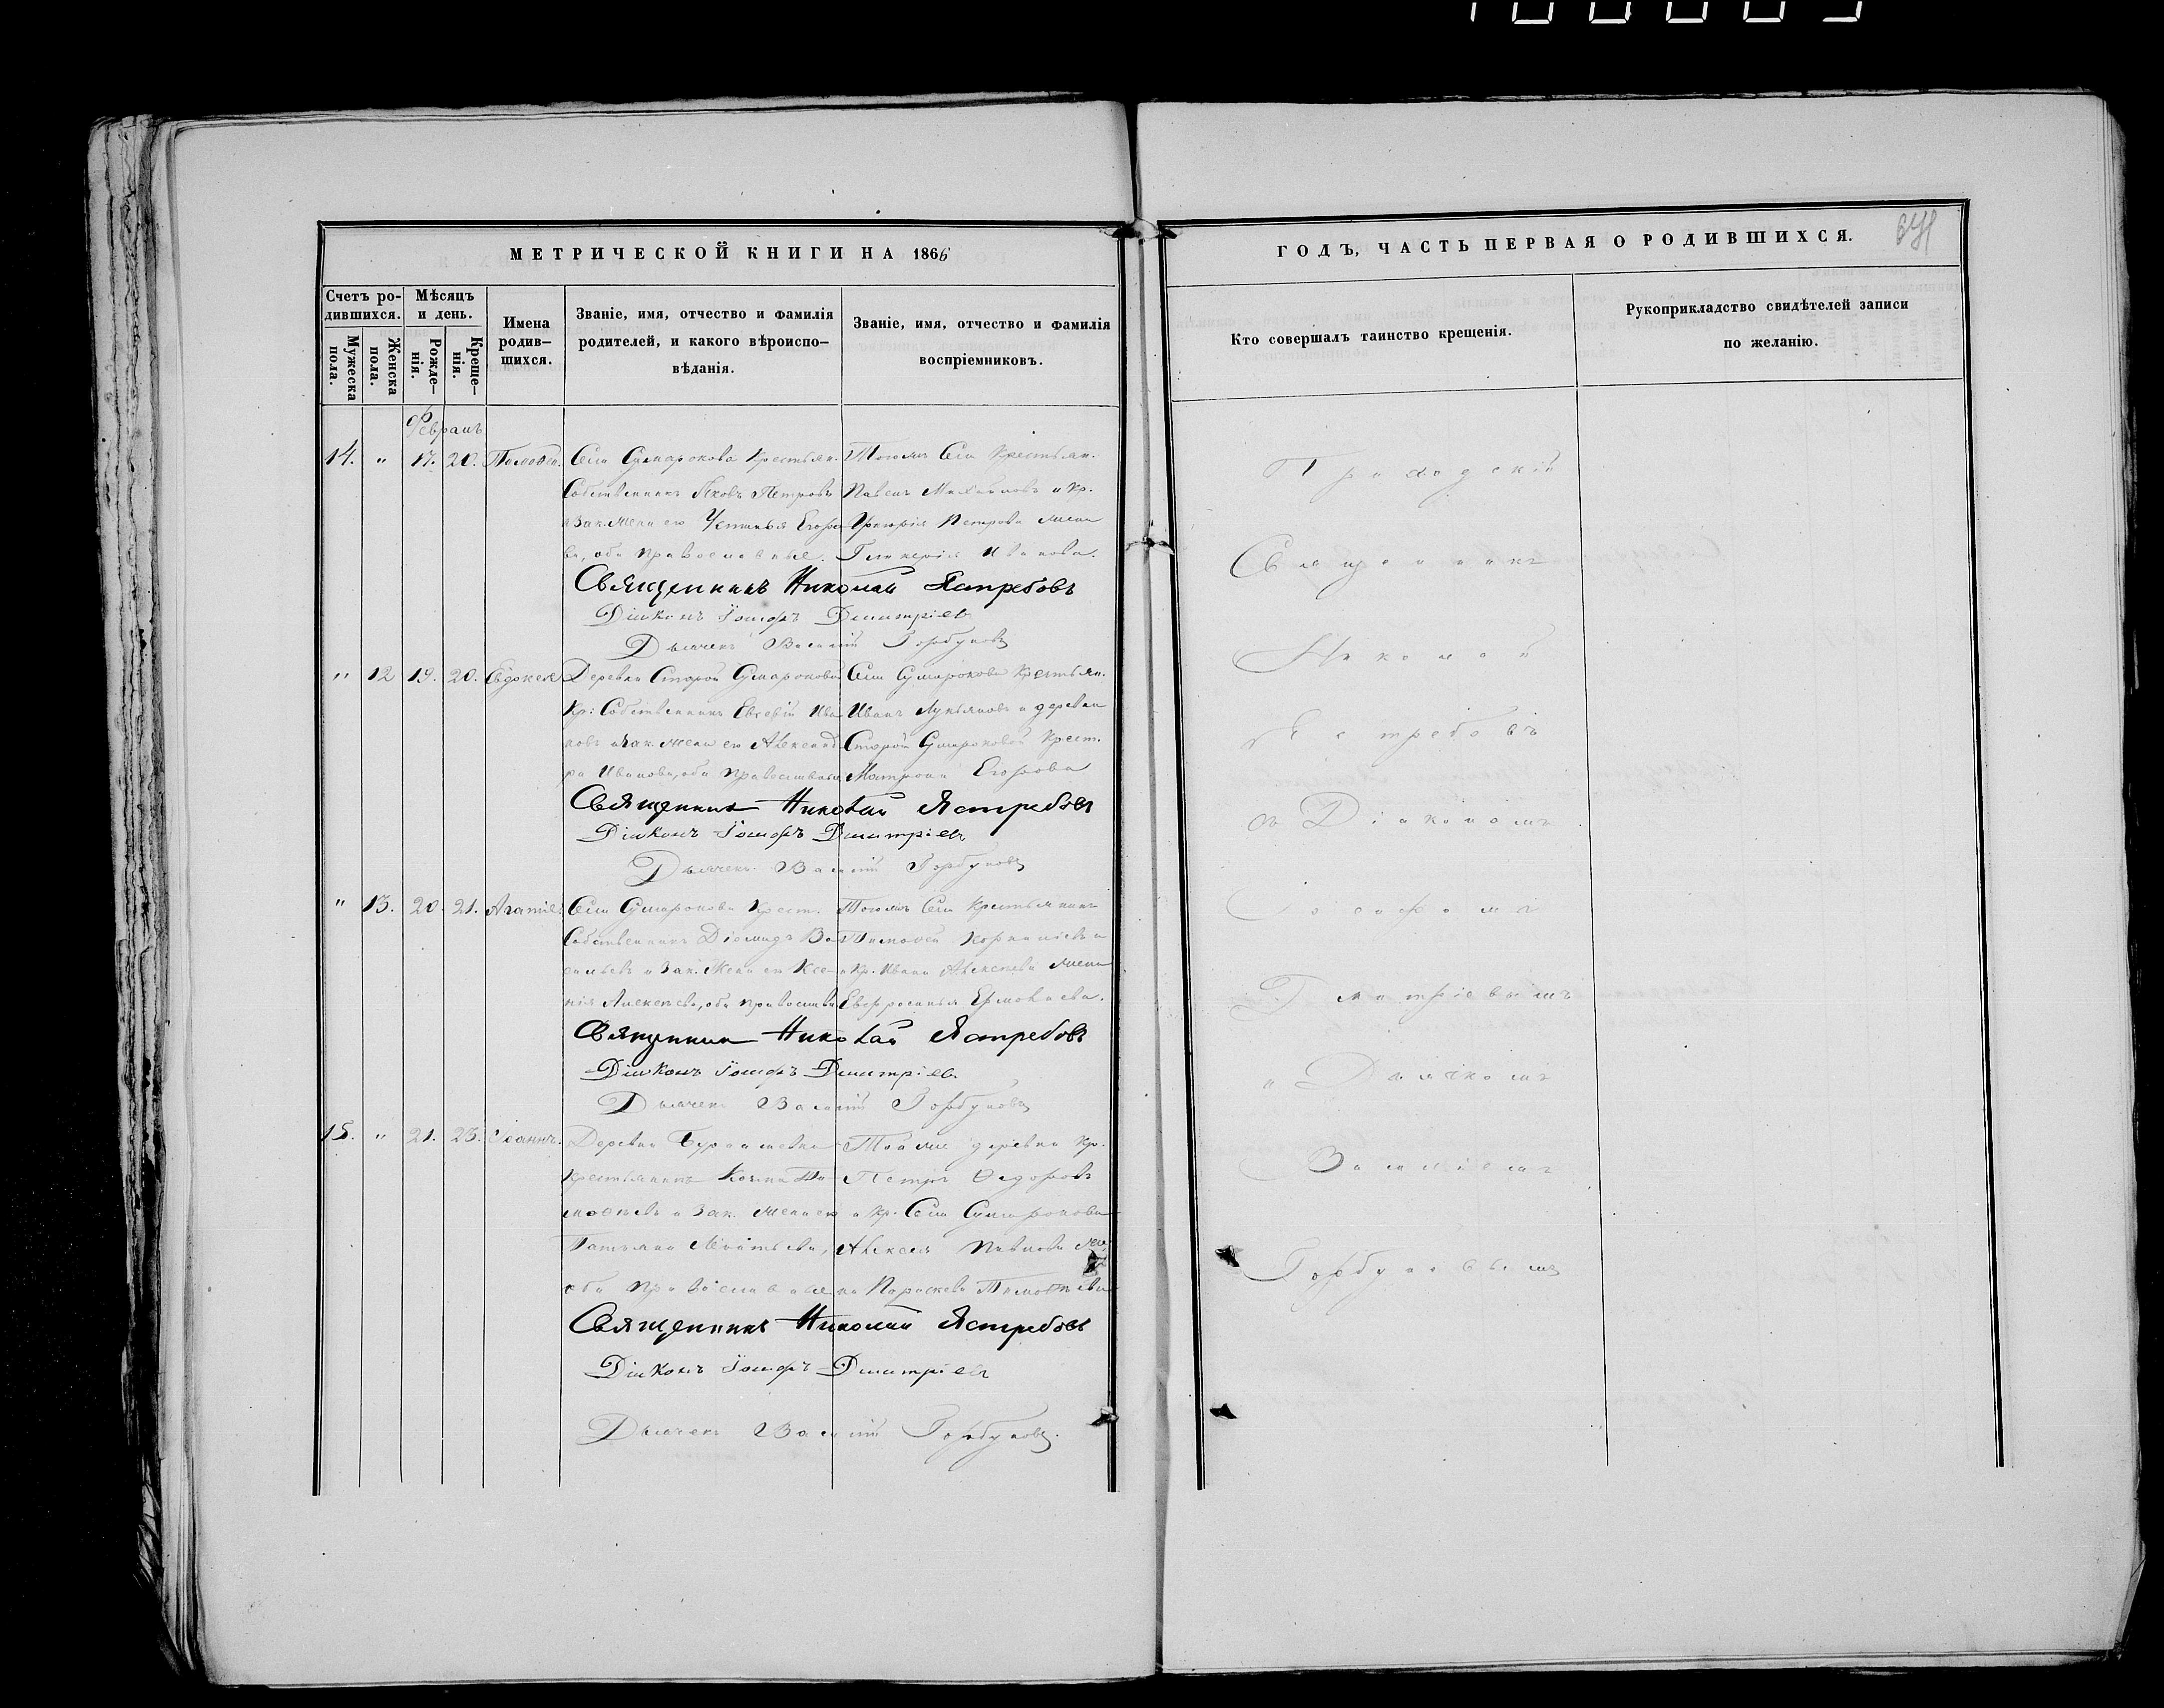 МЕТРИЧЕСКОЙ КНИГИ НА 1866
Счетъ ро-
дившихся.
Мужеска
пола.
Женска
пола.
Мѣсяцъ
и день.
Рожде-
нія.
Креще-
нія.
Имена
родив-
шихся.
Званіе, имя, отчество и фамилія
родителей, и какого вѣроиспо-
вѣданія.
Званіе, имя, отчество и фамилія
воспріемниковъ.
14. " 17. 20. Тимоѳей.
Села Сумарокова Крестьян.
Собственникъ Яковъ Петровъ
и Зак. Жена его Устинья Егоро-
ва, оба православные.
Тогожъ Села Крестьян.
Павелъ Михайловъ и Кр.
Григорія Петрова жена
Гликерія Иванова.
Священникъ Николай Ястребовъ
Діаконъ Іосифъ Дмитріевъ
Дьячекъ Василій Горбуновъ
" 12 19. 20. Евдокея
Деревни Старой Сумароковой
Кр: Собственникъ Евсевій Ива-
новъ и Зак. жена его Александ-
ра Иванова, оба православные
Села Сумарокова Крестьян.
Иванъ Лукьяновъ и деревни
Старой Сумароковой Крест.
Матрона Егорова
Священникъ Николай Ястребовъ
Діаконъ Іосифъ Дмитріевъ
Дьячекъ Василій Горбуновъ
" 13. 20. 21. Агапія
Села Сумарокова Крест.
Собственникъ Діомидъ Ва-
сильевъ и Зак. Жена его Ксе-
нія Алексѣева, оба православные
Тогожъ Села Крестьянинъ
Тимоѳей Корниліевъ и
Кр. Ивана Алексѣева жена
Евфросинья Ермолаева.
Священникъ Николай Ястребовъ
Діаконъ Іосифъ Дмитріевъ
Дьячекъ Василій Горбуновъ
15. " 21. 23. Іоаннъ.
Деревни
Крестьянинъ Козьма Ти-
моѳеевъ и Зак. жена его
Татьяна
оба православные
Тойже деревни Кр.
Петръ Ѳедоровъ
и Кр. Села Сумарокова
Алексея Павлова
Параскева Тимоѳеева
Священникъ Николай Ястребовъ
Діаконъ Іосифъ Дмитріевъ
Дьячекъ Василій Горбуновъ.
ГОДЪ, ЧАСТЬ ПЕРВАЯ О РОДИВШИХСЯ.
Кто совершалъ таинство крещенія.
Рукоприкладство свидѣтелей записи
по желанію.
Приходскій
Священникъ
Николай
Ястребовъ
съ Діакономъ
Іосифомъ
Дмитріевымъ
и Дьячкомъ
Василіемъ
Горбуновымъ